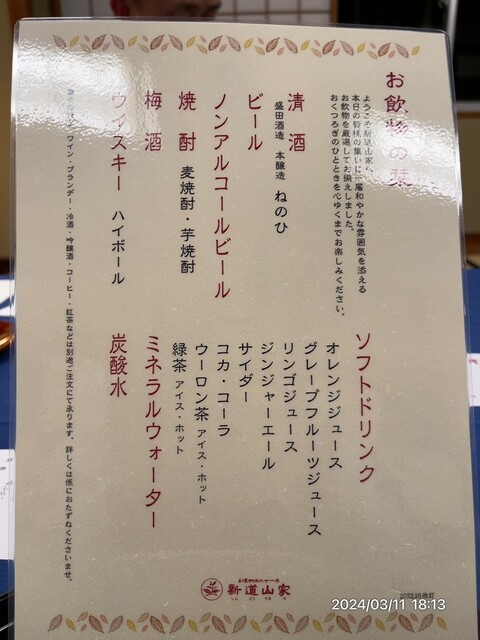 お飲物の栞
ようこそ新道山家へ
本日の皆様の集いに一層和やかな雰囲気を添える
お飲物を厳選してお揃えしました。
おくつろぎのひとときを心ゆくまでお楽しみください。
清酒
盛田酒造 本醸造 ねのひ
ビール
ノンアルコールビール
焼酎 麦焼酎・芋焼酎
梅酒
ウイスキー ハイボール
ソフトドリンク
オレンジジュース
グレープフルーツジュース
リンゴジュース
ジンジャーエール
サイダー
コカ・コーラ
ウーロン茶 アイス・ホット
緑茶 アイス・ホット
ミネラルウォーター
炭酸水
ワイン・ブランデー・冷酒・吟醸酒・コーヒー・紅茶などは別途ご注文にて承ります。詳しくは係におたずねくださいませ。
新道山家
2024/03/11 18:13